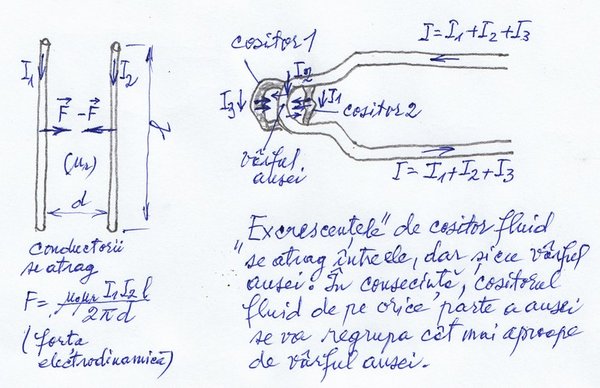 I₁
I₂
F⃗
-F⃗
(μr)
d
l
conductorii
se atrag
F = μ₀μr I₁ I₂ l / 2πd
(forta
electrodinamică)
cositor 1
I₃
I₂
I₁
cositor 2
vârful
ansei
I = I₁ + I₂ + I₃
I = I₁ + I₂ + I₃
"Excrescențele" de cositor fluid
se atrag între ele, dar și cu vârful
ansei. În consecință, cositorul
fluid de pe orice parte a ansei
se va regrupa cât mai aproape
de vârful ansei.